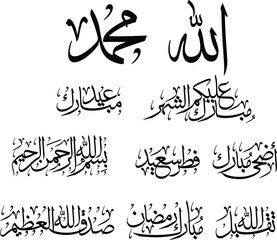 الله محمد
مبارك عليكم الشهر عيد مبارك
أضحى مبارك فطر سعيد بسم الله الرحمن الرحيم
مبارك رمضان صدق الله العظيم